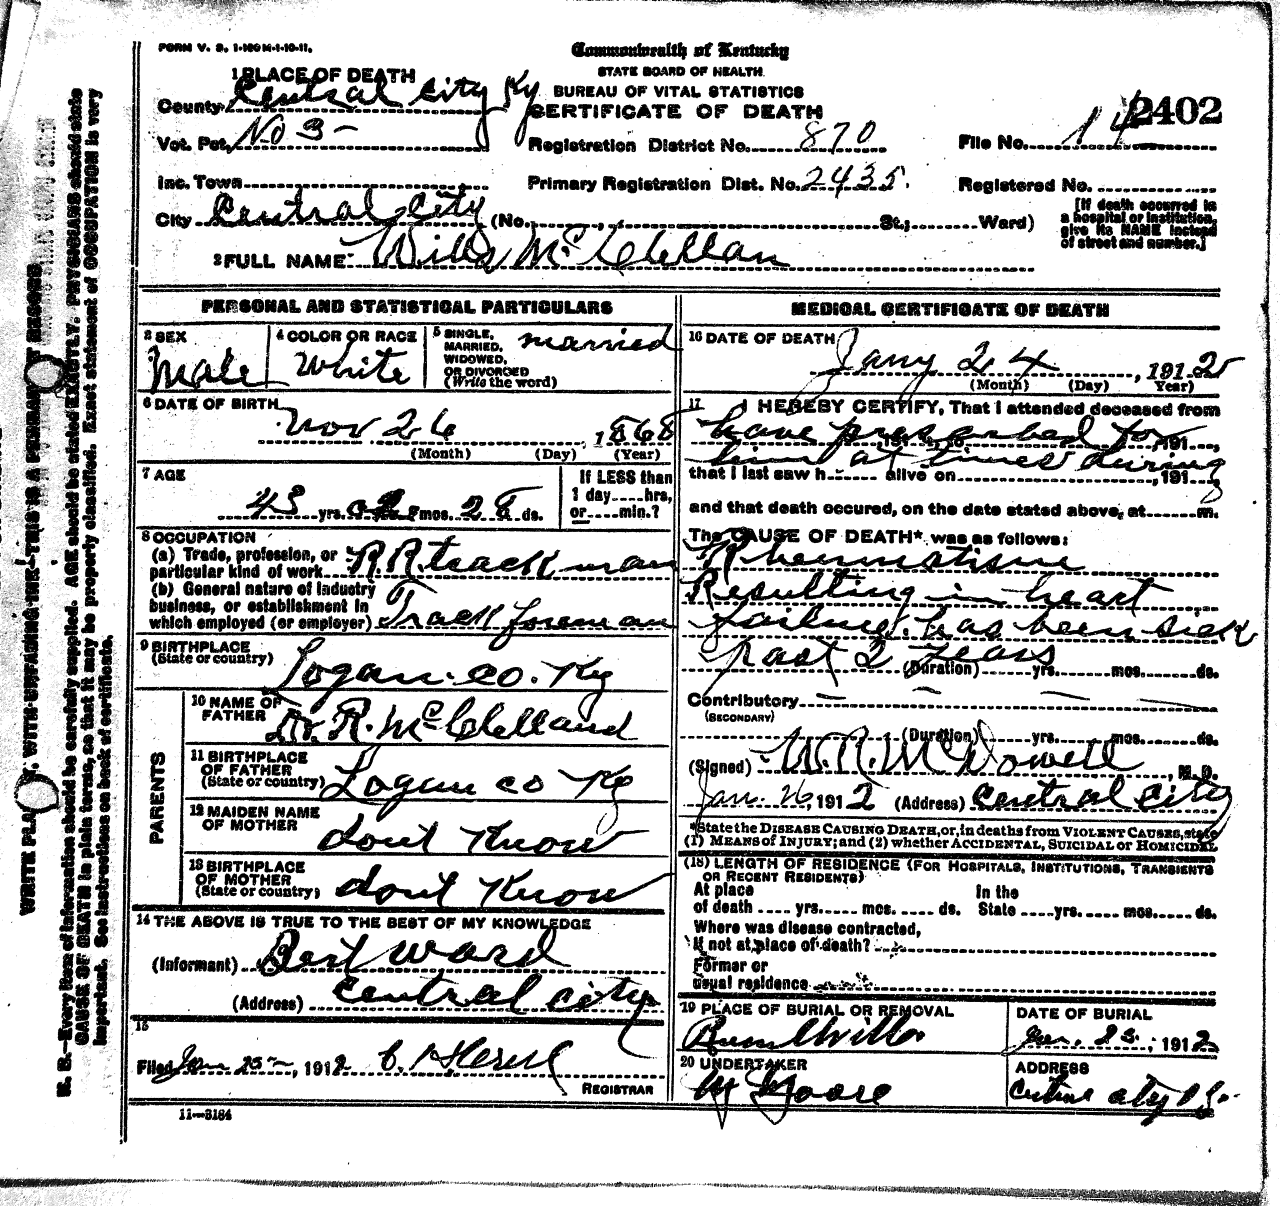 FORM V. S. 1-100M-1-10-11.
Commonwealth of Kentucky
STATE BOARD OF HEALTH.
BUREAU OF VITAL STATISTICS
CERTIFICATE OF DEATH
1 PLACE OF DEATH
County Central City Ky
Vot. Pct. No 3
Registration District No. 870
File No. 14
2402
Inc. Town
Primary Registration Dist. No. 2435.
Registered No.
City Central City (No. , St.; Ward)
[If death occurred in
a hospital or institution,
give its NAME instead
of street and number.]
2 FULL NAME Wills McClellan
PERSONAL AND STATISTICAL PARTICULARS
3 SEX
Male
4 COLOR OR RACE
White
5 SINGLE,
MARRIED,
WIDOWED,
OR DIVORCED
(Write the word)
married
6 DATE OF BIRTH
Nov 26, 1868
(Month) (Day) (Year)
7 AGE
43 yrs. mos. 28 ds.
If LESS than
1 day....hrs,
or....min.?
8 OCCUPATION
(a) Trade, profession, or
particular kind of work R.R. track man
(b) General nature of industry
business, or establishment in
which employed (or employer) Track foreman
9 BIRTHPLACE
(State or country) Logan. co. Ky
PARENTS
10 NAME OF
FATHER Dr. R. McClelland
11 BIRTHPLACE
OF FATHER
(State or country) Logan co Ky
12 MAIDEN NAME
OF MOTHER dont Know
13 BIRTHPLACE
OF MOTHER
(State or country) dont Know
14 THE ABOVE IS TRUE TO THE BEST OF MY KNOWLEDGE
(Informant) Bert Ward
(Address) Central City
15
Filed Jan 25, 1912
REGISTRAR
11—3184
MEDICAL CERTIFICATE OF DEATH
16 DATE OF DEATH
Jany 24, 1912
(Month) (Day) (Year)
17 I HEREBY CERTIFY, That I attended deceased from
have prescribed for , 191 , to , 191 ,
him at times during
that I last saw h alive on , 191 ,
and that death occured, on the date stated above, at m.
The CAUSE OF DEATH* was as follows:
Rheumatism
Resulting in heart
failure. has been sick
past 2 years
(Duration) yrs. mos. ds.
Contributory
(SECONDARY)
(Duration) yrs. mos. ds.
(Signed) W.R. McDowell, M. D.
Jan. 26, 1912 (Address) Central City
*State the DISEASE CAUSING DEATH, or, in deaths from VIOLENT CAUSES, state
(1) MEANS of INJURY; and (2) whether ACCIDENTAL, SUICIDAL or HOMICIDAL
(18) LENGTH OF RESIDENCE (FOR HOSPITALS, INSTITUTIONS, TRANSIENTS
OR RECENT RESIDENTS)
At place In the
of death .... yrs. .... mos. .... ds. State .... yrs. .... mos. .... ds.
Where was disease contracted,
If not at place of death?
Former or
usual residence
19 PLACE OF BURIAL OR REMOVAL
DATE OF BURIAL
Jan. 25, 1912
20 UNDERTAKER
M Moore
ADDRESS
Central City Ky.
WRITE PLAINLY, WITH UNFADING INK—THIS IS A PERMANENT RECORD
N. B.—Every item of information should be carefully supplied. AGE should be stated EXACTLY. PHYSICIANS should state
CAUSE OF DEATH in plain terms, so that it may be properly classified. Exact statement of OCCUPATION is very
important. See instructions on back of certificate.